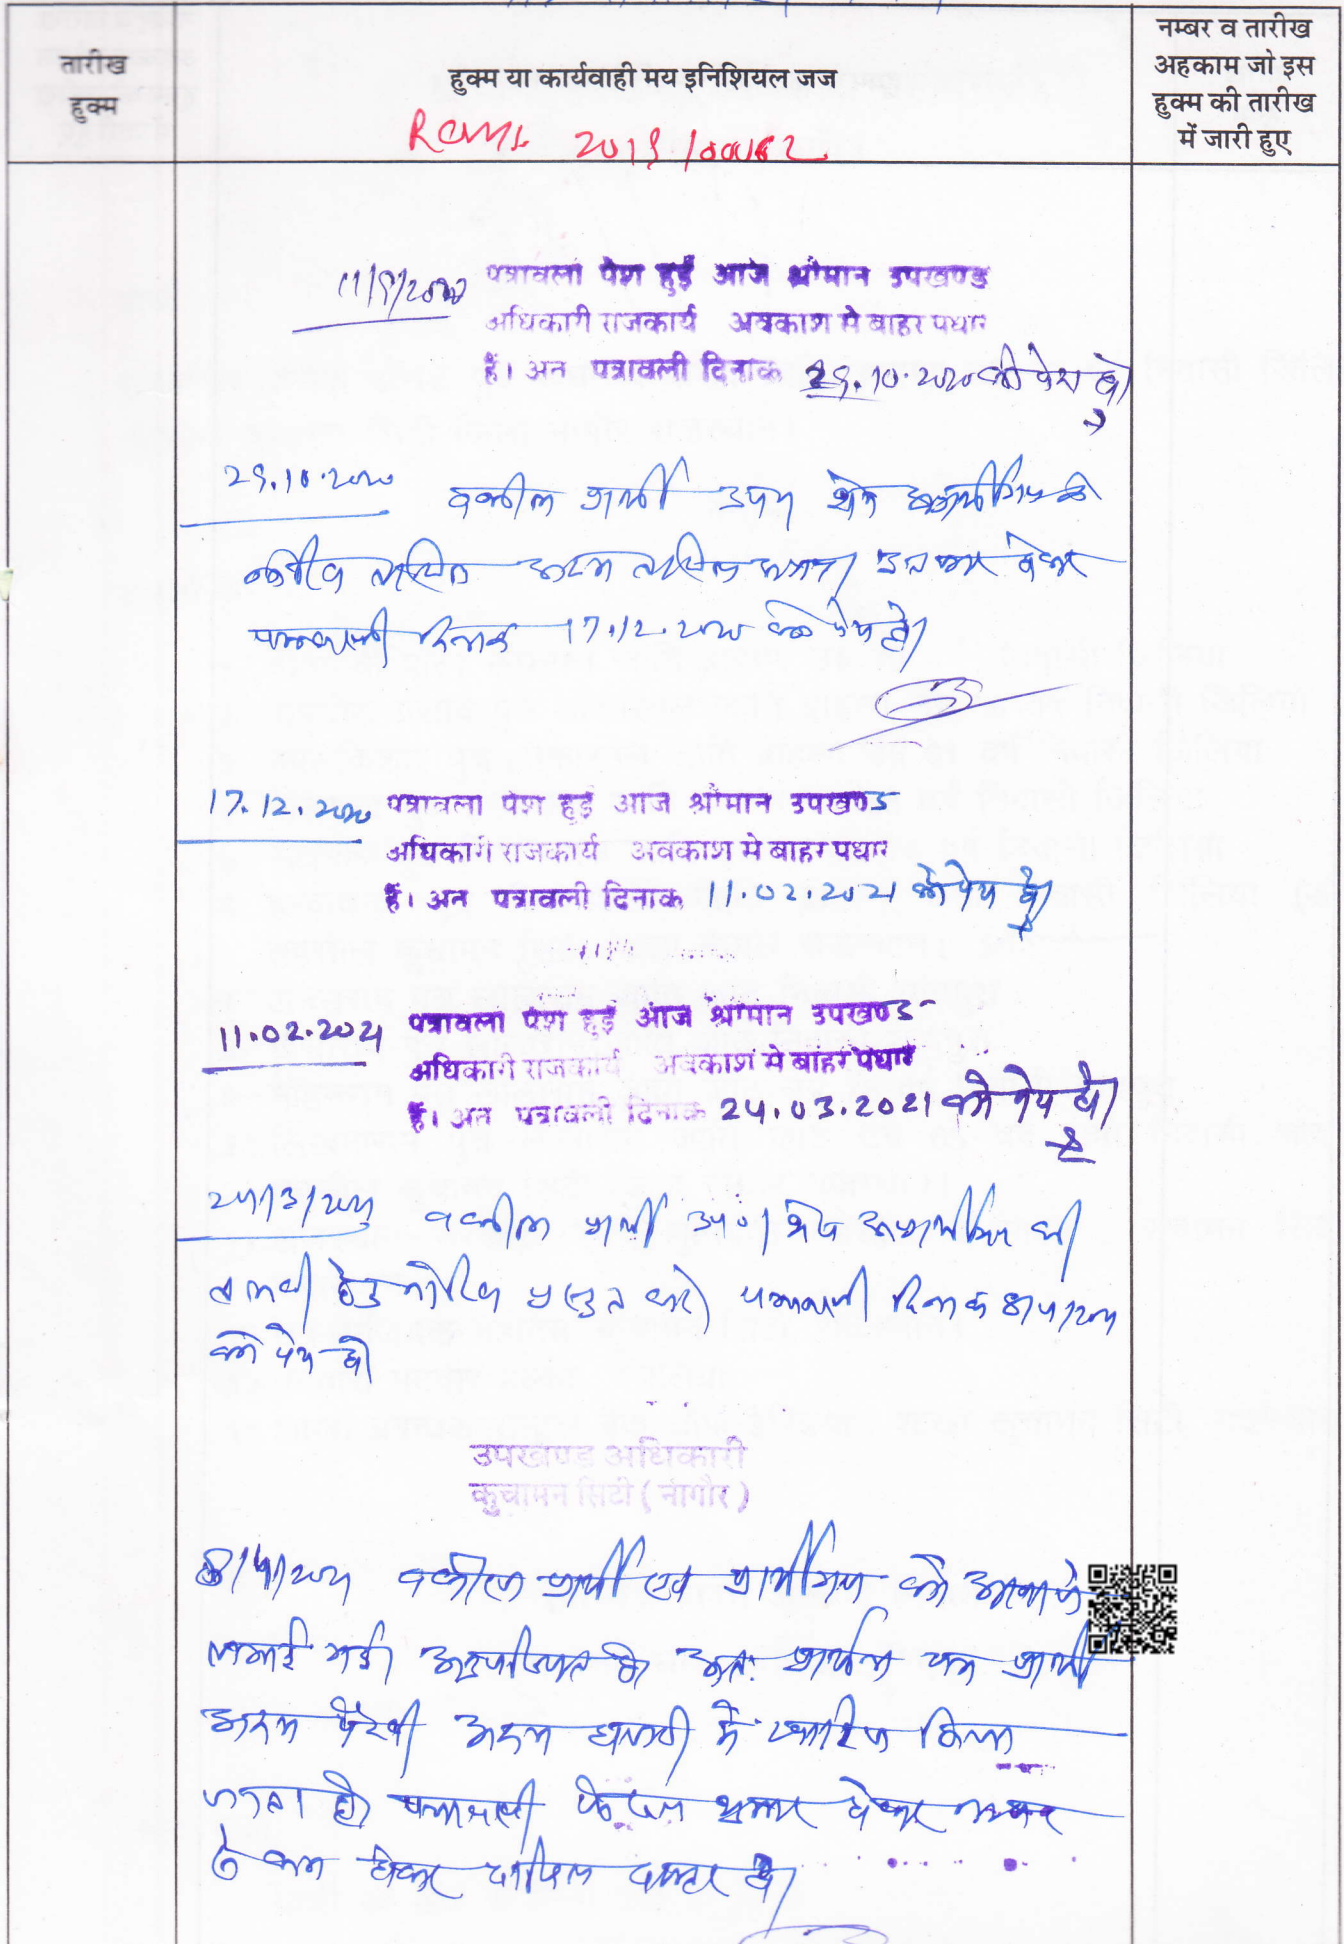 तारीख
हुक्म
हुक्म या कार्यवाही मय इनिशियल जज
नम्बर व तारीख
अहकाम जो इस
हुक्म की तारीख
में जारी हुए
2019/00162
11/9/2020 पत्रावली पेश हुई आज श्रीमान उपखण्ड
अधिकारी राजकार्य अवकाश मे बाहर पधारे
हैं। अत पत्रावली दिनाक 29.10.2020 को पेश हो
29.10.2020 वकील प्रार्थी उप० शेष अप्रार्थीगण की
पत्रावली दिनांक 17.12.2020 को पेश हो।
17.12.2020 पत्रावली पेश हुई आज श्रीमान उपखण्ड
अधिकारी राजकार्य अवकाश मे बाहर पधारे
हैं। अत पत्रावली दिनाक 11.02.2021 को पेश हो।
11.02.2021 पत्रावली पेश हुई आज श्रीमान उपखण्ड
अधिकारी राजकार्य अवकाश मे बाहर पधारे
हैं। अत पत्रावली दिनाक 24.03.2021 को पेश हो।
24/3/2021 वकील प्रार्थी उप०। शेष अप्रार्थीगण की
तलबी हेतु नोटिस प्रस्तुत करे। पत्रावली दिनांक 8/4/2021
को पेश हो।
उपखण्ड अधिकारी
कुचामन सिटी ( नागौर )
8/4/2021 वकील प्रार्थी एवं प्रार्थीगण को आवाजे
लगाई गई। अनुपस्थित है अतः प्रार्थना पत्र प्रार्थी
अदम पैरवी अदम हाजरी मे खारिज किया
जाता है। पत्रावली फैसल शुमार होकर नम्बर
से कम होकर दाखिल दफ्तर हो।